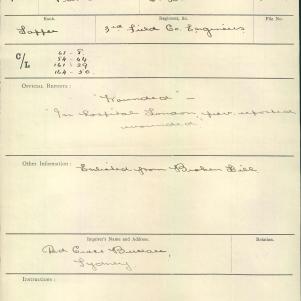 Rank.
Regiment, &c.
File No.
Sapper
3rd Field Co. Engineers
C/L
65 - 8.
84 - 64
161 - 29
164 - 50
OFFICIAL REPORTS :
"Wounded" -
"In hospital London, prev. reported
wounded"
Other Information :
Enlisted from Broken Hill
Inquirer's Name and Address.
Relation.
Red Cross Bureau,
Sydney
Instructions :